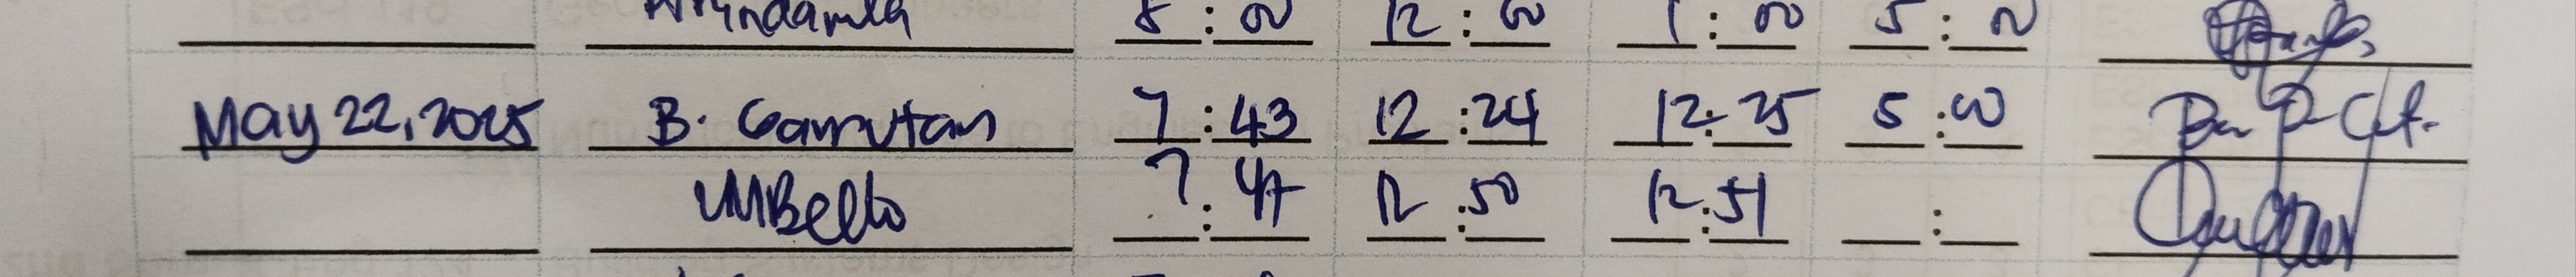 8:00 12:00 1:00 5:00
May 22, 2025 B. Gamutan 7:43 12:24 12:25 5:00
UMBello 7:47 12:50 12:51 :